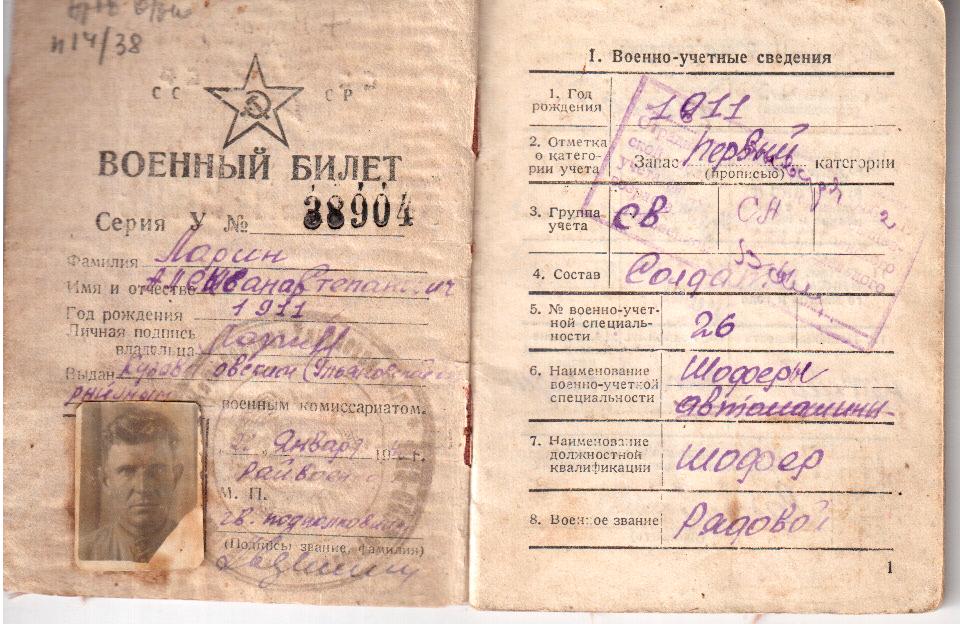 п14/38
СС СР
ВОЕННЫЙ БИЛЕТ
Серия У № 38904
Фамилия Ларин
Имя и отчество Степанович
Год рождения 1911
Личная подпись
владельца Ларин
Выдан
военным комиссариатом.
22 Января 19 г.
Райвоен
М. П.
гв. подполковник
(Подпись, звание, фамилия)
I. Военно-учетные сведения
1. Год
рождения 1911
2. Отметка
о катего-
рии учета Запас первый категории
(прописью)
3. Группа
учета СВ СА 2
4. Состав Солдат
5. № военно-учет-
ной специаль-
ности 26
6. Наименование
военно-учетной
специальности Шоферы
автомашины
7. Наименование
должностной
квалификации шофер
8. Военное звание Рядовой
1